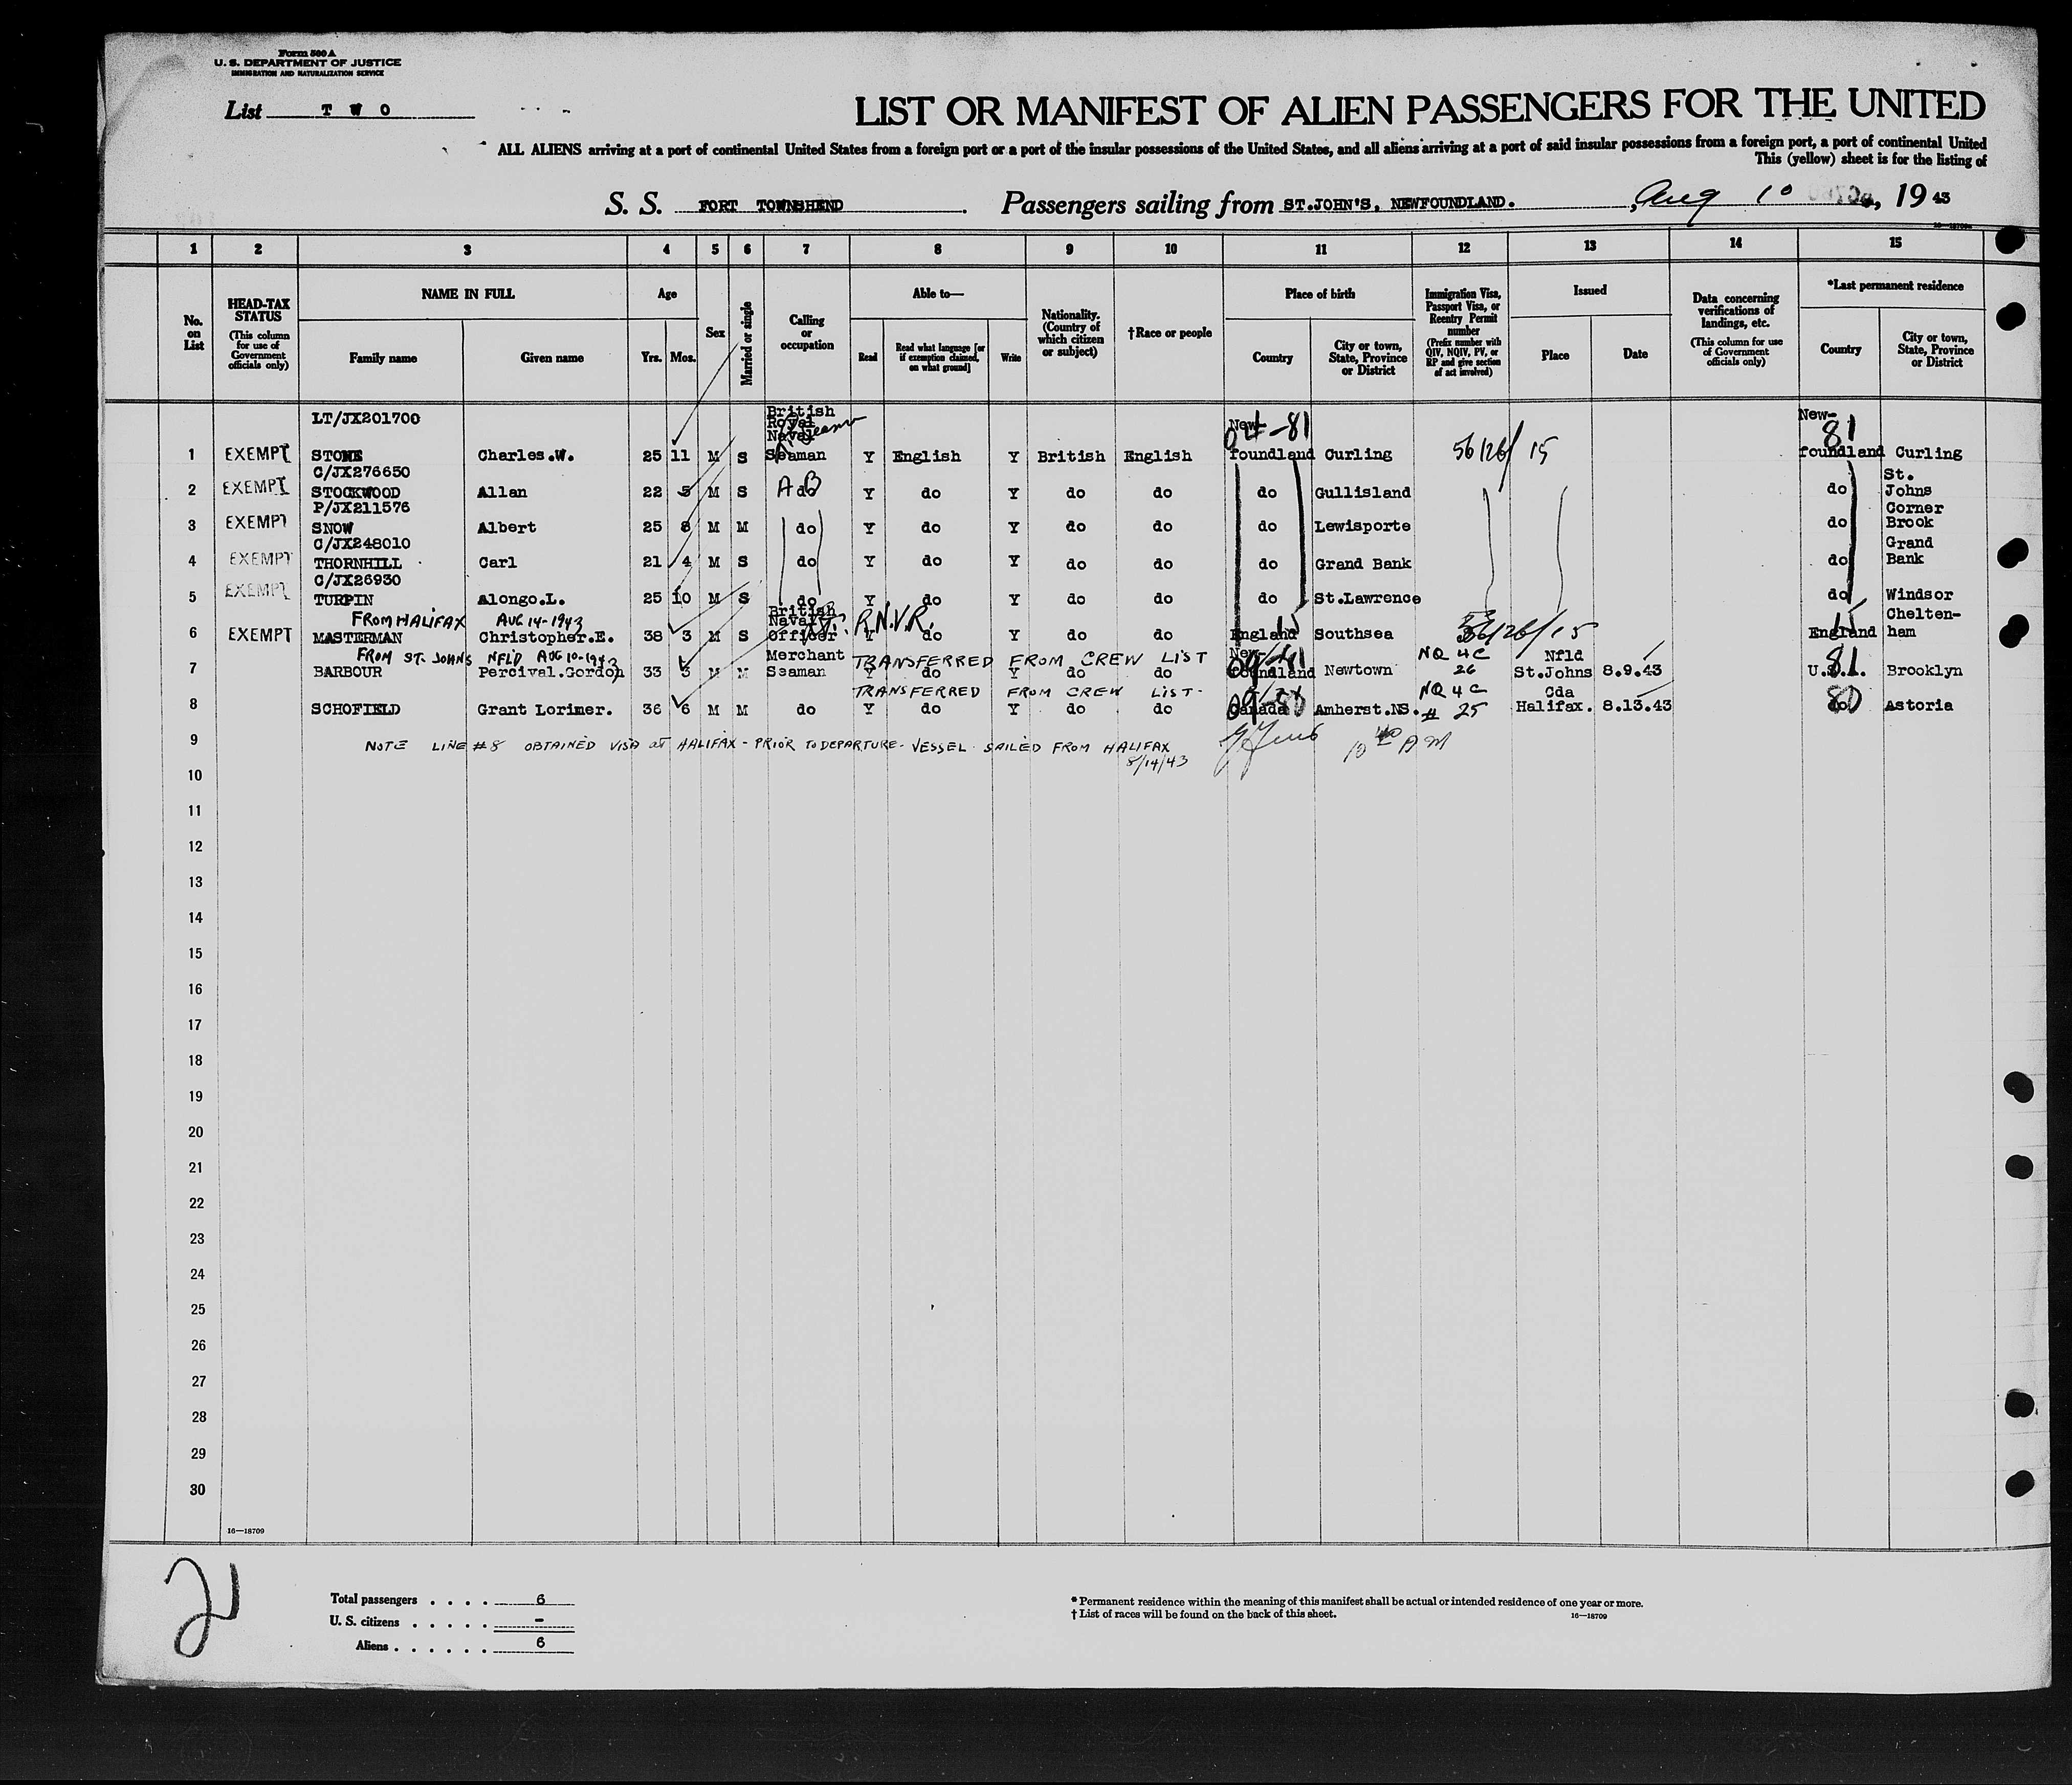 Form 500 A
U. S. DEPARTMENT OF JUSTICE
IMMIGRATION AND NATURALIZATION SERVICE
List T W O
LIST OR MANIFEST OF ALIEN PASSENGERS FOR THE UNITED
ALL ALIENS arriving at a port of continental United States from a foreign port or a port of the insular possessions of the United States, and all aliens arriving at a port of said insular possessions from a foreign port, a port of continental United
This (yellow) sheet is for the listing of
S. S. FORT TOWNSHEND. Passengers sailing from ST.JOHN'S, NEWFOUNDLAND. , Aug 10, 19 43
1 2 3 4 5 6 7 8 9 10 11 12 13 14 15
No. on List
HEAD-TAX STATUS (This column for use of Government officials only)
NAME IN FULL Family name Given name
Age Yrs. Mos.
Sex
Married or single
Calling or occupation
Able to— Read Read what language [or if exemption claimed, on what ground] Write
Nationality. (Country of which citizen or subject)
†Race or people
Place of birth Country City or town, State, Province or District
Immigration Visa, Passport Visa, or Reentry Permit number (Prefix number with QIV, NQIV, PV, or RP and give section of act involved)
Issued Place Date
Data concerning verifications of landings, etc. (This column for use of Government officials only)
*Last permanent residence Country City or town, State, Province or District
LT/JX201700 British Royal Naval New- 04-81 New- 81
1 EXEMPT STONE Charles.W. 25 11 M S Seaman Y English Y British English foundland Curling 56/26/15 foundland Curling
C/JX276650 St.
2 EXEMPT STOCKWOOD Allan 22 5 M S AB do Y do Y do do do Gullisland do Johns
P/JX211576 Corner
3 EXEMPT SNOW Albert 25 8 M M do Y do Y do do do Lewisporte do Brook
C/JX248010 Grand
4 EXEMPT THORNHILL Carl 21 4 M S do Y do Y do do do Grand Bank do Bank
C/JX26930
5 EXEMPT TURPIN Alongo.L. 25 10 M S do Y do Y do do do St.Lawrence do Windsor
FROM HALIFAX AUG 14-1943 British Naval R.N.V.R. 15 15 Chelten-
6 EXEMPT MASTERMAN Christopher.E. 38 3 M S Officer Y do Y do do England Southsea 56/26/15 England ham
FROM ST. JOHNS NFLD AUG 10-1943 Merchant TRANSFERRED FROM CREW LIST New- NQ 4C Nfld 81
7 BARBOUR Percival.Gordon 33 3 M M Seaman Y do Y do do foundland Newtown 26 St.Johns 8.9.43 U.S.A. Brooklyn
TRANSFERRED FROM CREW LIST- NQ 4C Cda
8 SCHOFIELD Grant Lorimer. 36 6 M M do Y do Y do do Canada Amherst.NS. # 25 Halifax. 8.13.43 do Astoria
9 NOTE LINE #8 OBTAINED VISA at HALIFAX - PRIOR TO DEPARTURE- VESSEL SAILED FROM HALIFAX 10 40 AM
8/14/43
10
11
12
13
14
15
16
17
18
19
20
21
22
23
24
25
26
27
28
29
30
16—18709
21
Total passengers . . . . 6
U. S. citizens . . . . . -
Aliens . . . . . . 6
* Permanent residence within the meaning of this manifest shall be actual or intended residence of one year or more.
† List of races will be found on the back of this sheet. 16—18709